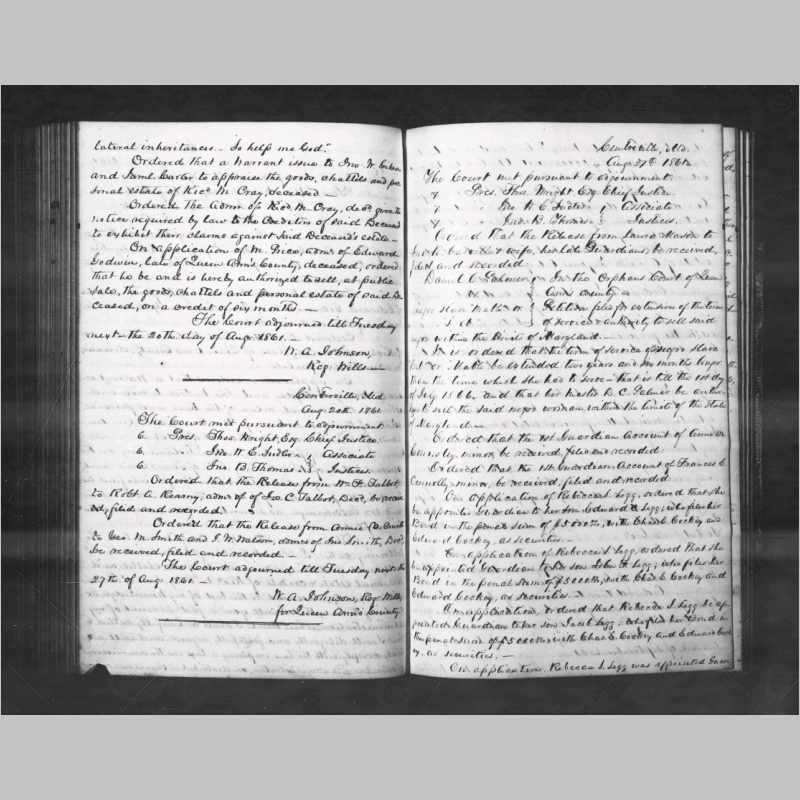 lateral inheritances. So help me God."
Ordered that a warrant issue to Jno. W.
and Saml. Carter to appraise the goods, chattels and per
sonal estate of Ricd. M. Cray, deceased. —
Ordered the admr. of Ricd. M. Cray, decd. give the
notice required by law to the Creditors of said Deceased
to exhibit their claims against said Deceased's estate. —
On application of M. Price, admr. of Edward
Godwin, late of Queen Ann's County, deceased, ordered
that he be and is hereby authorized to sell, at public
sale, the goods, chattels and personal estate of said De
ceased, on a credit of six months. —
The Court adjourned till Tuesday
next the 20th. day of Aug. 1861. —
W. A. Johnson,
Reg. Wills. —
Centreville, Md.
Aug. 20th. 1861.
The Court met pursuant to adjournment.
6 Pres. Thos. Wright, Esq. Chief Justice
6 Jno. W. E. Sudler } Associate
6 Jno. B. Thomas } Justices.
Ordered that the Release from Wm. H. Talbot,
to Robt. A. Keamy, admr. of Jos. C. Talbot, Decd. be receiv
ed, filed and recorded.
Ordered that the Release from Annie
to Geo. M. Smith and J. W. Watson, admrs. of Jno. Smith, Decd.
be received, filed and recorded. —
The Court adjourned till Tuesday next the
27th. of Aug. 1861. —
W. A. Johnson, Reg. Wills
for Queen Ann's County.
Centreville, Md.
Aug. 27th. 1861.
The Court met pursuant to adjournment.
7 Pres. Thos. Wright Esq. Chief Justice
7 Jno. W. E. Sudler } Associate
7 Jno. B. Thomas } Justices.
Ordered that the Release from Laura Mason to
& wife, her late Guardians, be received,
filed and recorded.
Daniel C. } In the Orphans Court of Queen
vs } Ann's County —
negro slave } Petition filed for extension of the term
} of service & authority to sell said
negro within the limits of Maryland. —
It is ordered that the term of service of negro slave
be extended two years and six months longer
than the time which she has to serve — that is till the 1st day
of July 186 and that her master D. C. be author
ized to sell the said negro woman within the limits of the State
of Maryland. —
Ordered that the 1st Guardian Account of
Connolly, minor, be received, filed and recorded.
Ordered that the 1st Guardian Account of Frances E.
Connolly, minor, be received, filed and recorded.
On application of Rebecca L. Legg, ordered that she
be appointed Guardian to her son Edward D. Legg; who files her
Bond in the penal sum of $5000, with Chas. E. Cockey and
Edward Cockey, as securities. —
On application of Rebecca L. Legg, ordered that she
be appointed Guardian to her son John H. Legg; who files her
Bond in the penal sum of $5000, with Chas. E. Cockey and
Edward Cockey, as securities.
On application, ordered that Rebecca L. Legg be ap
pointed Guardian to her son Jacob Legg; who filed her Bond in
the penal sum of $5000 with Chas. E. Cockey and Edward Cock
ey, as securities. —
On application, Rebecca L. Legg was appointed Guar